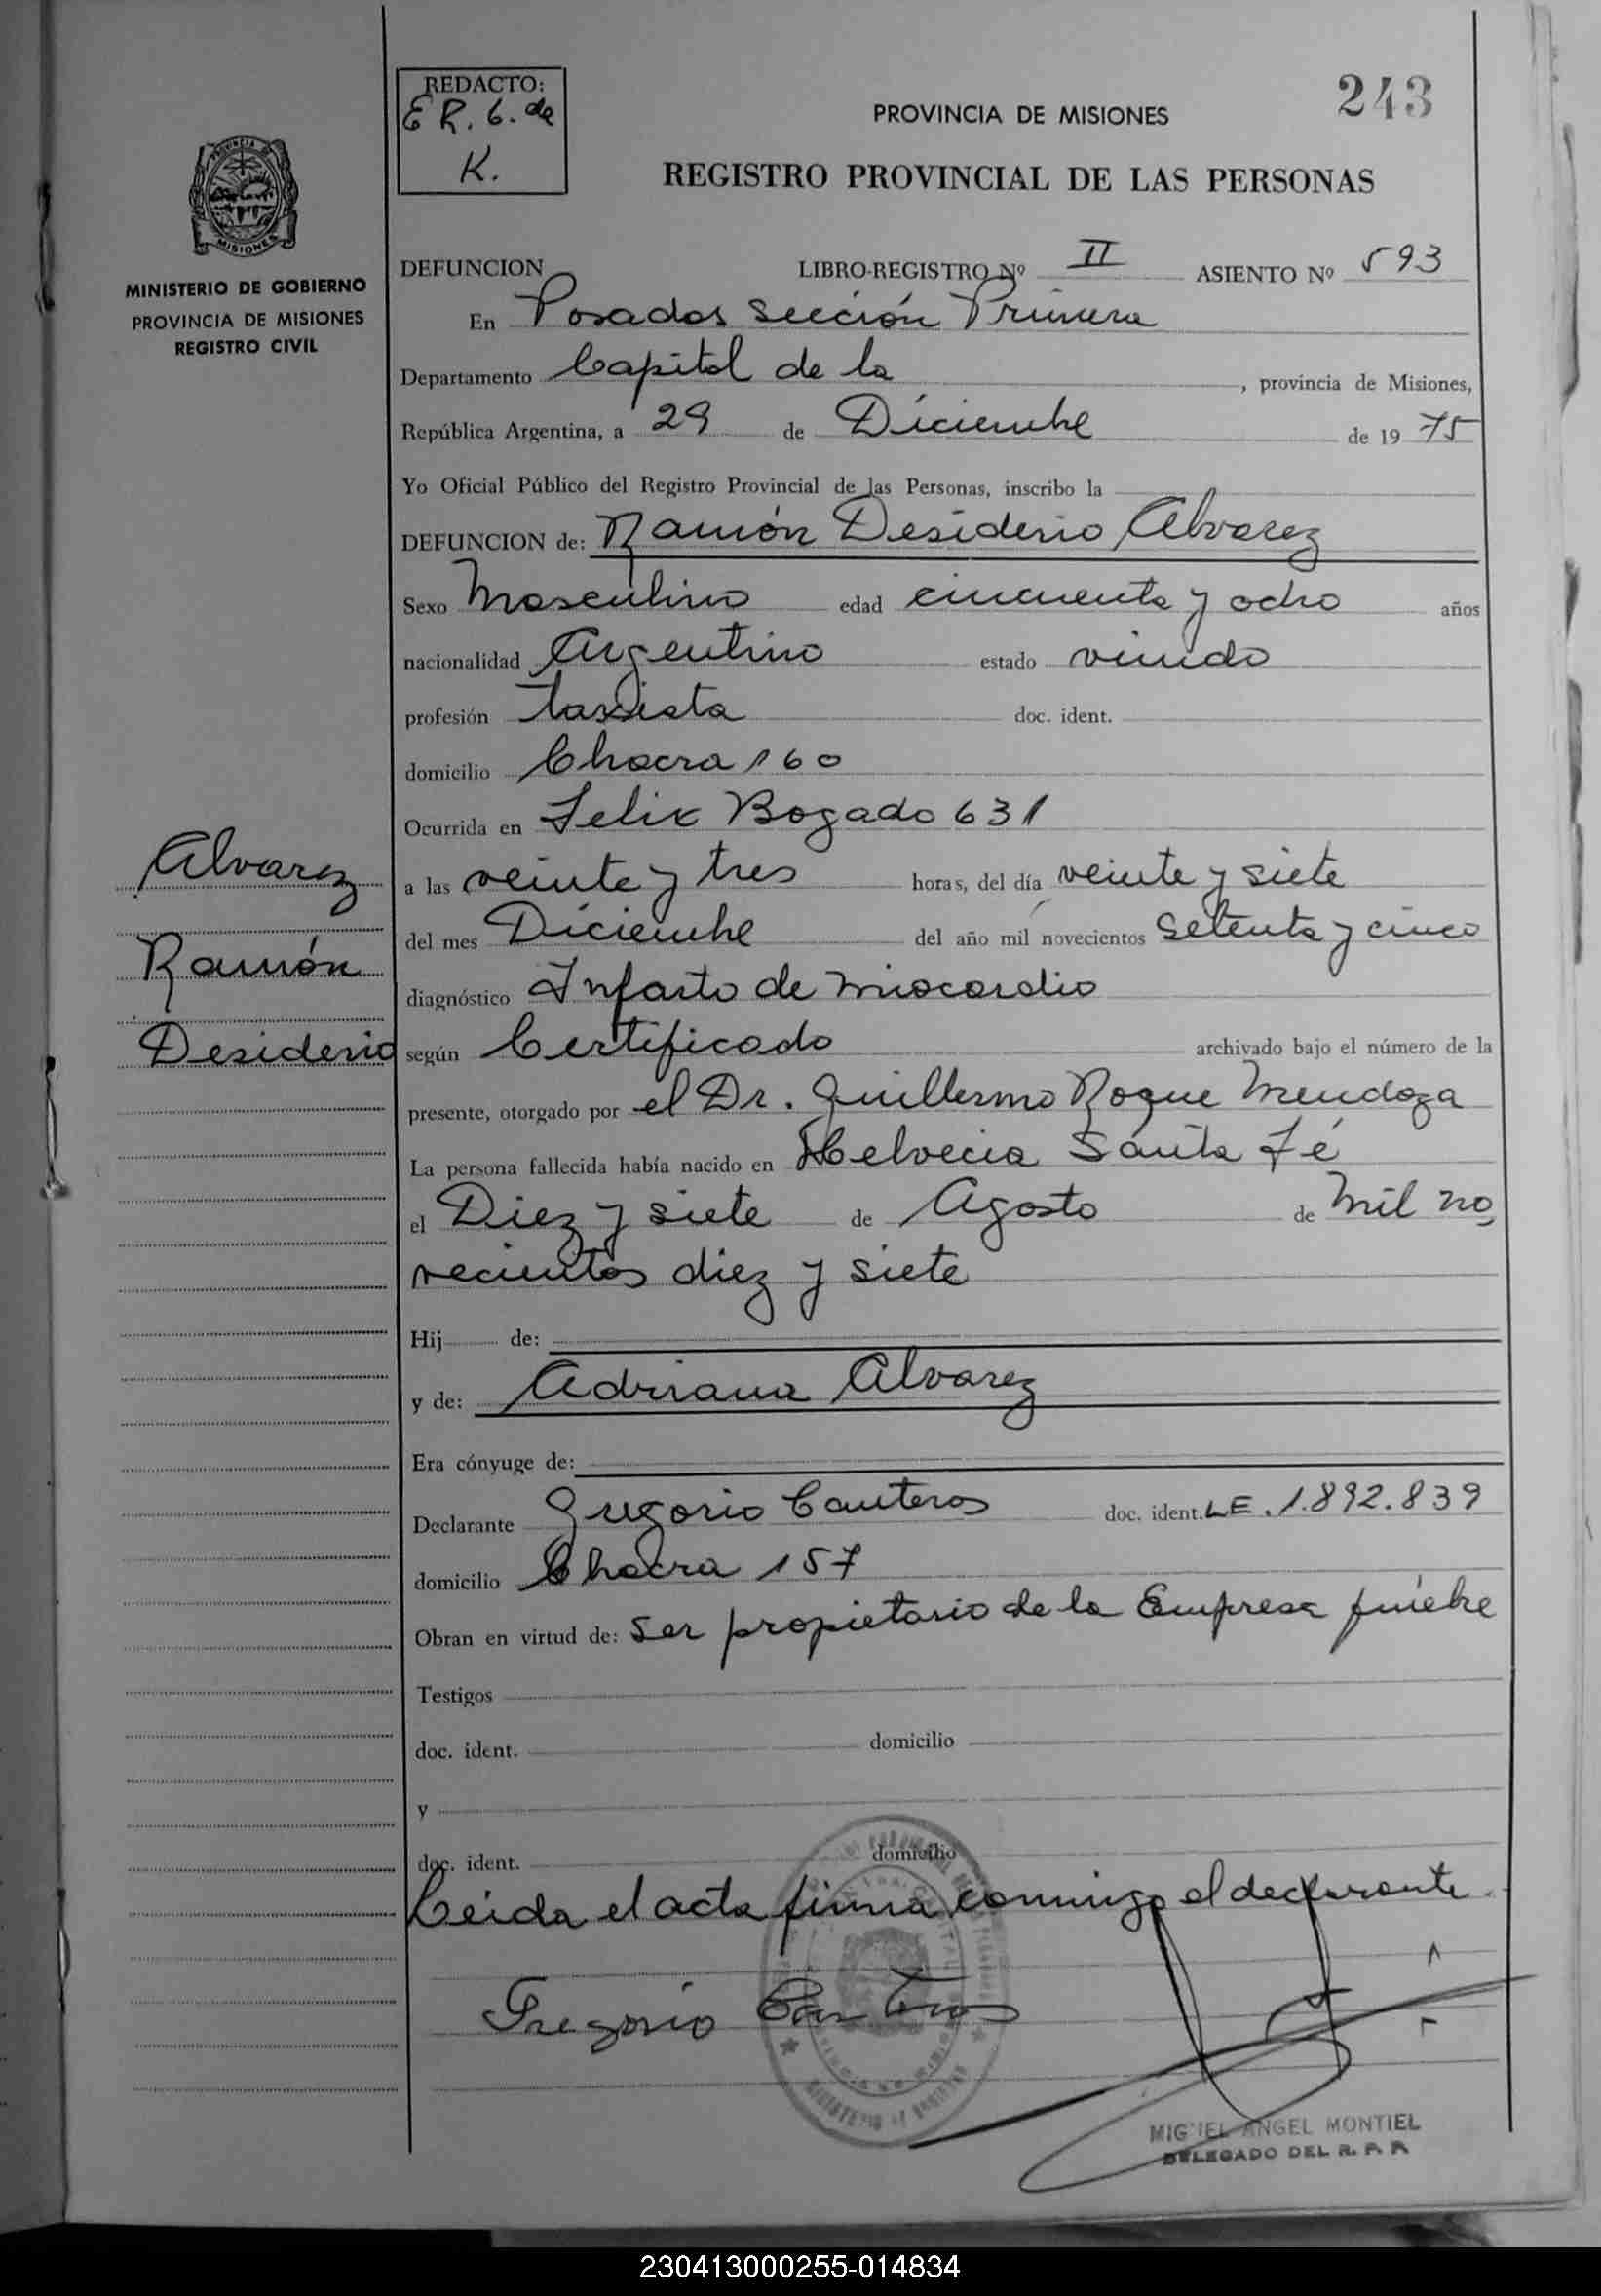 REDACTO:
E R. G. de
K.
243
PROVINCIA DE MISIONES
REGISTRO PROVINCIAL DE LAS PERSONAS
MISIONES
MINISTERIO DE GOBIERNO
PROVINCIA DE MISIONES
REGISTRO CIVIL
DEFUNCION LIBRO-REGISTRO Nº II ASIENTO Nº 593
En Posadas Sección Primera
Departamento Capital de la , provincia de Misiones,
República Argentina, a 29 de Diciembre de 19 75
Yo Oficial Público del Registro Provincial de las Personas, inscribo la
DEFUNCION de: Ramón Desiderio Alvarez
Sexo Masculino edad cincuenta y ocho años
nacionalidad Argentino estado viudo
profesión taxista doc. ident.
domicilio Chacra 160
Ocurrida en Felix Bogado 631
a las veinte y tres horas, del día veinte y siete
del mes Diciembre del año mil novecientos Setenta y cinco
diagnóstico Infarto de miocardio
según Certificado archivado bajo el número de la
presente, otorgado por el Dr. Guillermo Roque Mendoza
La persona fallecida había nacido en Helvecia Santa Fé
el Diez y siete de Agosto de Mil no
vecientos diez y siete
Hij de:
y de: Adriana Alvarez
Era cónyuge de:
Declarante Gregorio Canteros doc. ident. LE. 1.892.839
domicilio Chacra 157
Obran en virtud de: Ser propietario de la Empresa fúnebre
Testigos
doc. ident. domicilio
y
doc. ident. domicilio
Leída el acta firma conmigo el declarante
Gregorio Canteros
MIGUEL ANGEL MONTIEL
DELEGADO DEL R. P. P.
Alvarez
Ramón
Desiderio
230413000255-014834